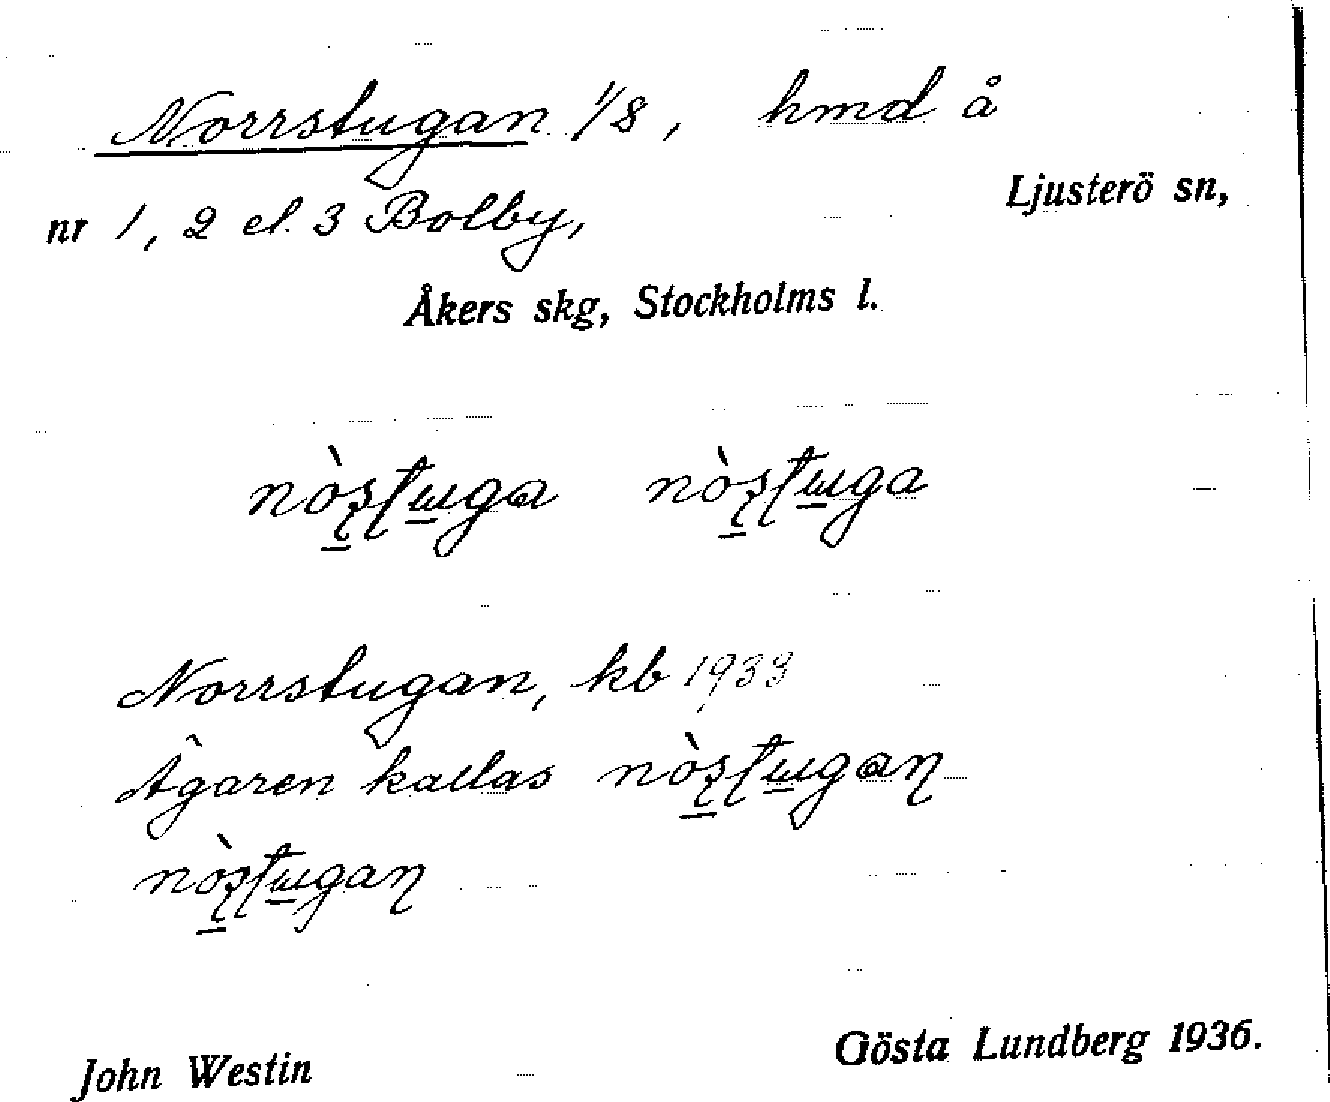 Norrstugan 1/8, hmd å
Ljusterö sn,
nr 1, 2 el. 3 Bolby,
Åkers skg, Stockholms l.
Norrstugan, kb 1933
Ägaren kallas
John Westin
Gösta Lundberg 1936.